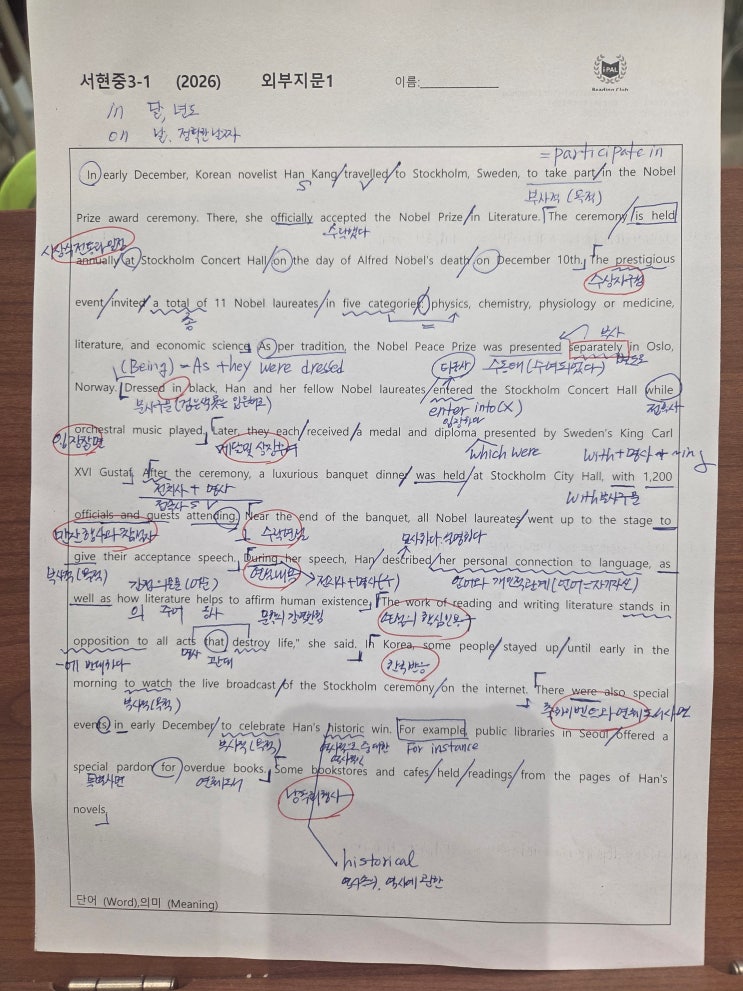 서현중3-1 (2026) 외부지문1 이름:
iPAL
Reading Club
in 달, 년도
on 날, 정확한 날짜
= participate in
In early December, Korean novelist Han Kang travelled to Stockholm, Sweden, to take part in the Nobel
S V 부사적 (목적)
Prize award ceremony. There, she officially accepted the Nobel Prize in Literature. The ceremony is held
수락했다
시상식 전통과 일정
annually at Stockholm Concert Hall on the day of Alfred Nobel's death on December 10th. The prestigious
수상자 구성
event invited a total of 11 Nobel laureates in five categories: physics, chemistry, physiology or medicine,
총 =
부사
literature, and economic science. As per tradition, the Nobel Peace Prize was presented separately in Oslo,
(Being) - As they were dressed 타동사 수동태 (수여되었다) 별도로
Norway. Dressed in black, Han and her fellow Nobel laureates entered the Stockholm Concert Hall while
부사구문 (검은색 옷을 입은채로) enter into (X) 접속사
입장하다
orchestral music played. Later, they each received a medal and diploma presented by Sweden's King Carl
입장장면 메달 및 상장 which were with + 명사 + ~ing
XVI Gustaf. After the ceremony, a luxurious banquet dinner was held at Stockholm City Hall, with 1,200
전치사 + 명사 with 분사구문
접속사 S V
officials and guests attending. Near the end of the banquet, all Nobel laureates went up to the stage to
만찬 행사와 참석자 수락연설 묘사하다, 설명하다
give their acceptance speech. During her speech, Han described her personal connection to language, as
부사적 (목적) 연설내용 전치사 + 명사 언어와 개인적 관계
간접의문문 (어순)
well as how literature helps to affirm human existence. "The work of reading and writing literature stands in
의 주어 동사
opposition to all acts that destroy life," she said. In Korea, some people stayed up until early in the
~에 반대하다 명사 관대 한국반응
morning to watch the live broadcast of the Stockholm ceremony on the internet. There were also special
부사적 (목적)
events in early December to celebrate Han's historic win. For example, public libraries in Seoul offered a
부사적 (목적) For instance
special pardon for overdue books. Some bookstores and cafes held readings from the pages of Han's
특별사면 연체
낭독회 행사
novels.
historical
역사의, 역사에 관한
단어 (Word),의미 (Meaning)